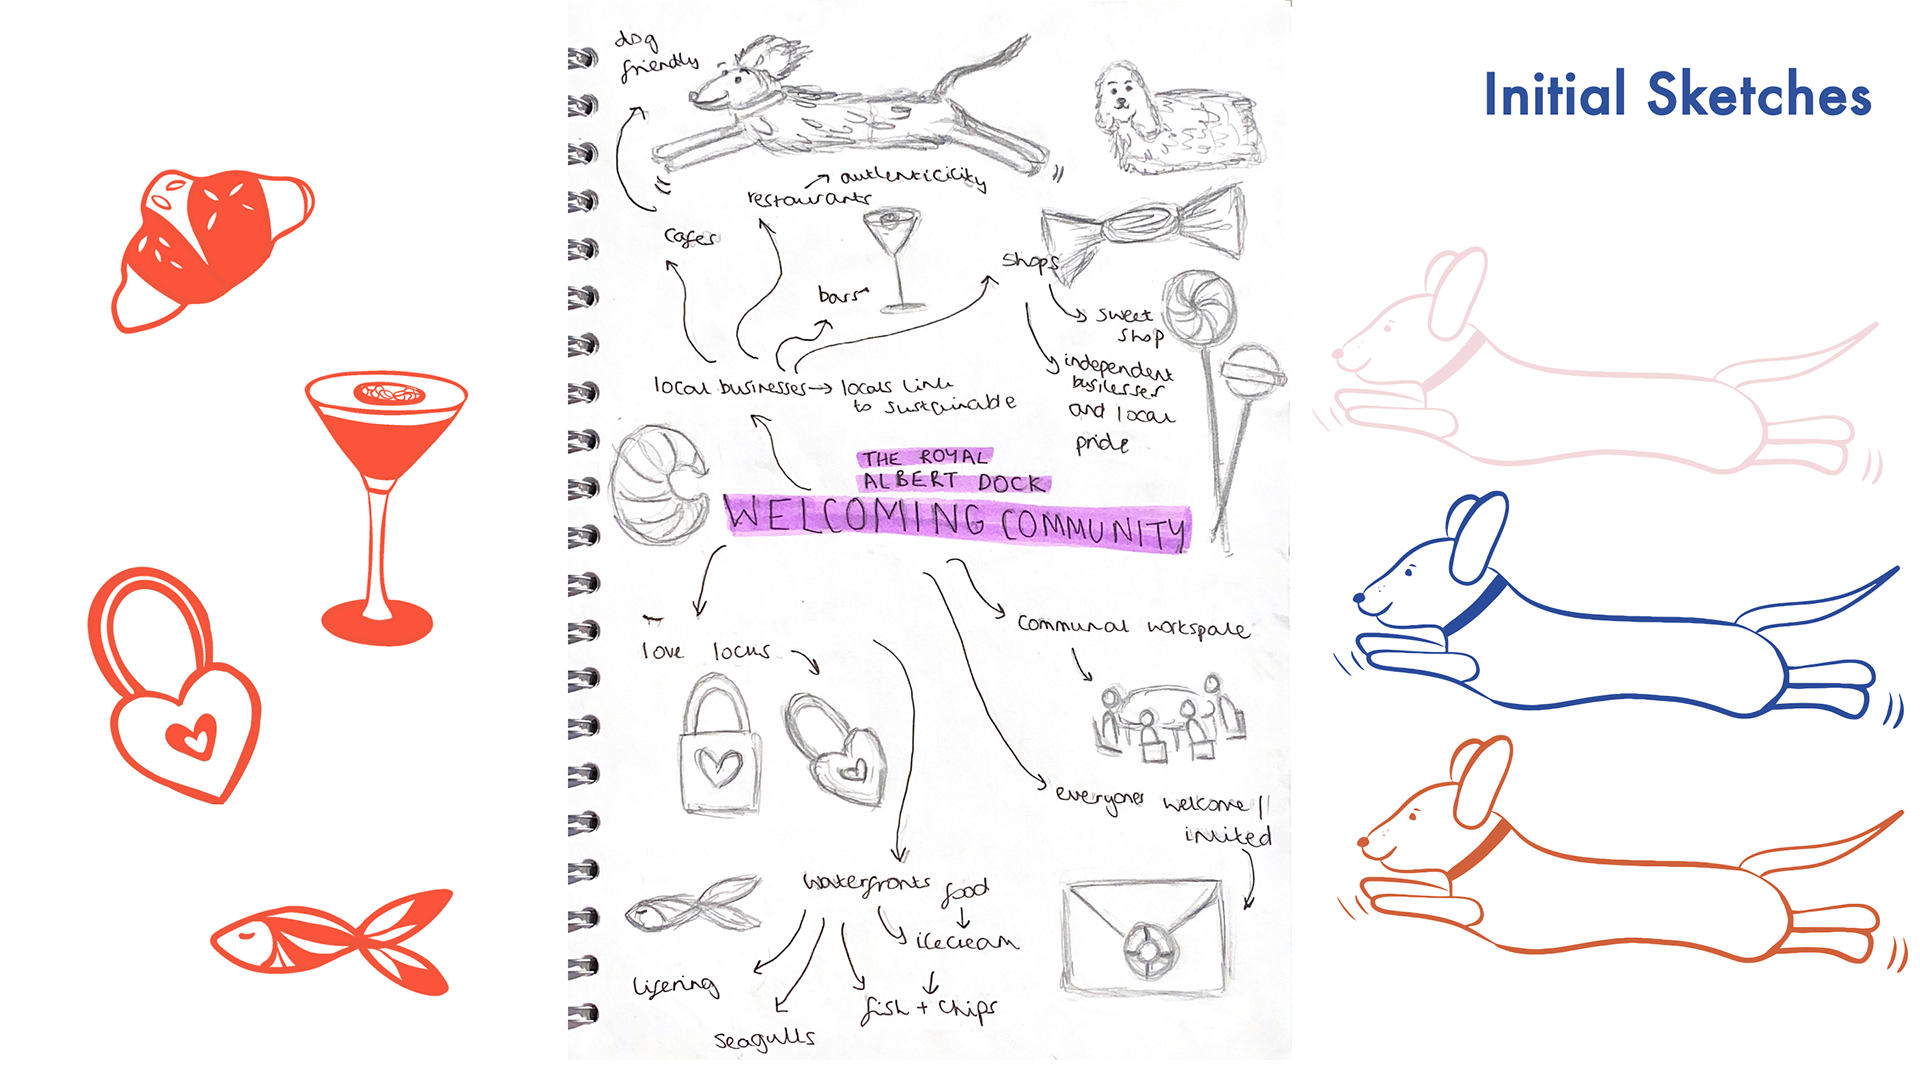 Initial Sketches
dog
friendly
restaurants
authenticicity
cafes
bars
shops
sweet
shop
independent
busilesser
and local
pride
local businesses → locals link
to sustainable
THE ROYAL
ALBERT DOCK
WELCOMING COMMUNITY
love locks
communal workspace
everyones welcome //
invited
waterfronts
food
icecream
fish + chips
seagulls